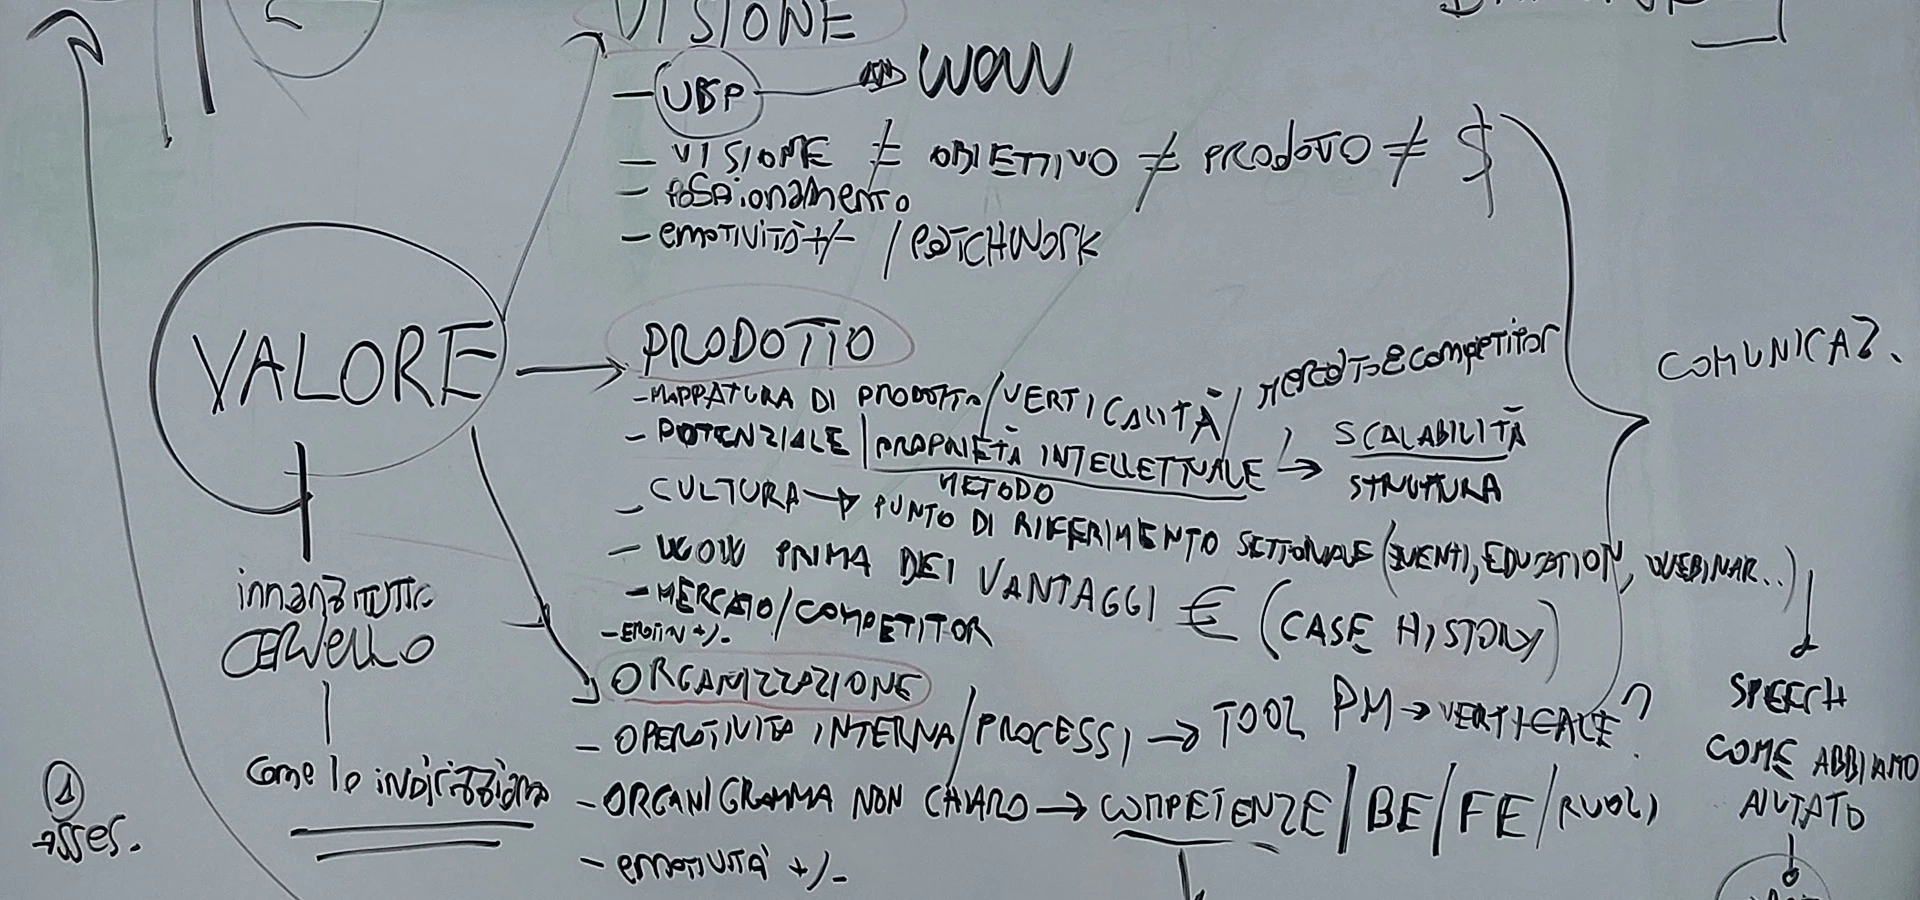 VISIONE
— UBP → WOW
— VISIONE ≠ OBIETTIVO ≠ PRODOTTO ≠ $
— POSAIONAMENTO
— EMOTIVITÀ +/- / PATCHWORK
VALORE
PRODOTTO
- MAPPATURA DI PRODOTTO / VERTICALITÀ / MERCATO E COMPETITOR
- POTENZIALE | PROPRIETÀ INTELLETTUALE → SCALABILITÀ
METODO STRUTTURA
- CULTURA → PUNTO DI RIFERIMENTO SETTORIALE (EVENTI, EDUCATION, WEBINAR..)
- WOW PRIMA DEI VANTAGGI € (CASE HISTORY)
- MERCATO / COMPETITOR
COMUNICAZ.
innanzitutto
CERVELLO
come lo indirizziamo
ORGANIZZAZIONE
- OPERATIVITÀ INTERNA / PROCESSI → TOOL PM → VERTICALE?
- ORGANIGRAMMA NON CHIARO → COMPETENZE / BE / FE / RUOLI
- EMOTIVITÀ +/-
SPEECH
COME ABBIAMO
AIUTATO
1
asses.